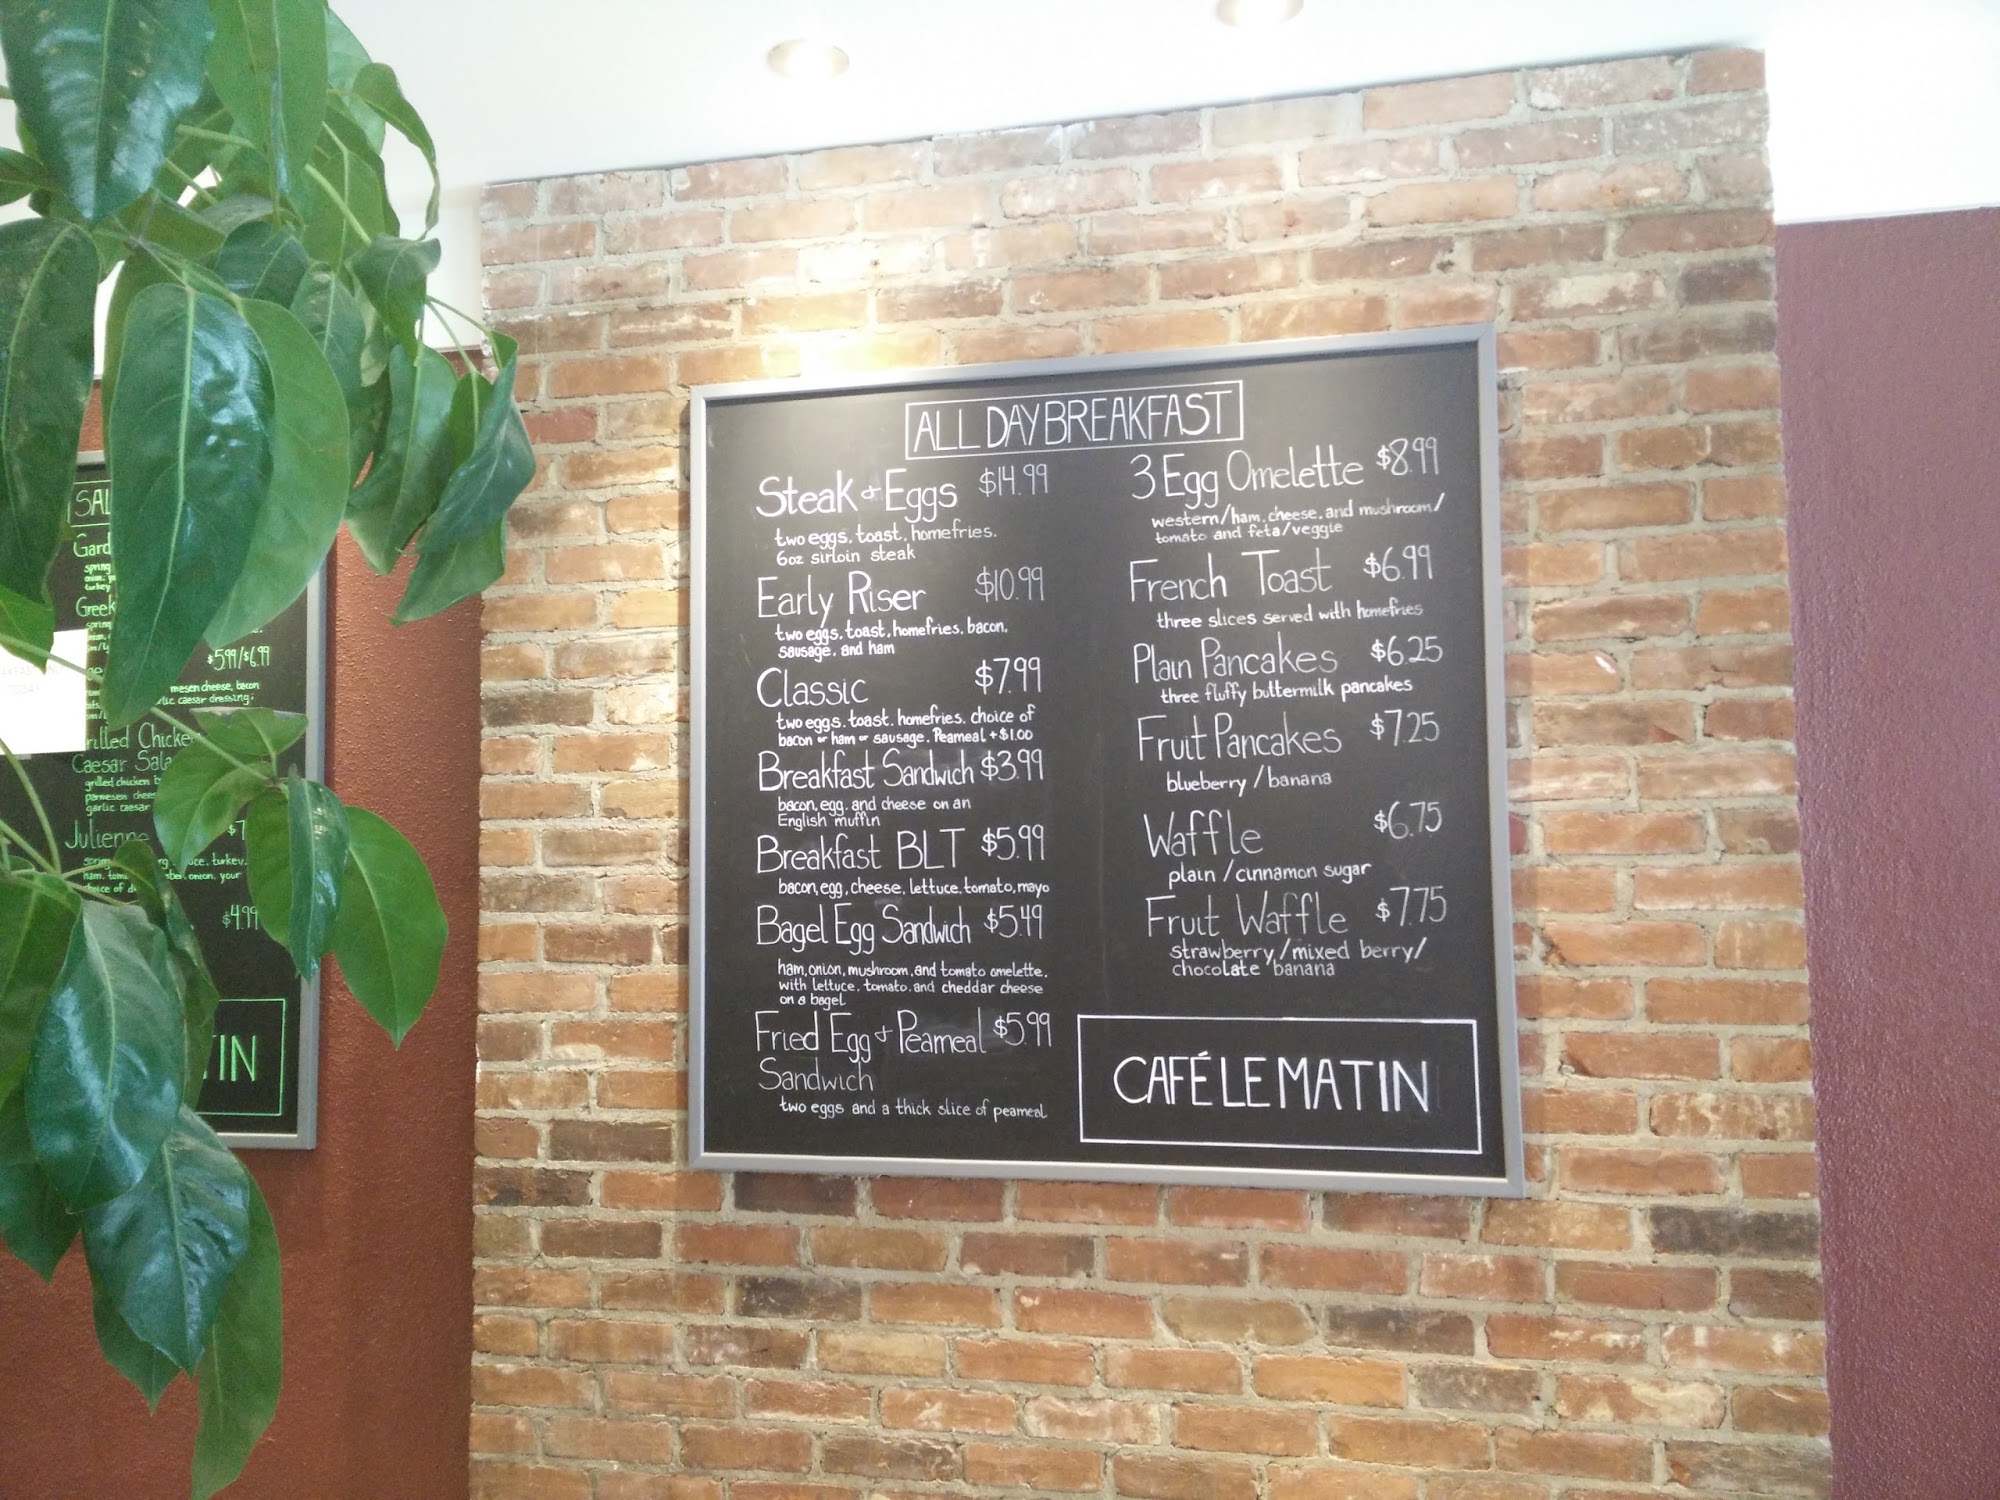 ALL DAY BREAKFAST
Steak & Eggs $14.99
two eggs, toast, homefries,
6oz sirloin steak
Early Riser $10.99
two eggs, toast, homefries, bacon,
sausage, and ham
Classic $7.99
two eggs, toast, homefries, choice of
bacon or ham or sausage, Peameal + $1.00
Breakfast Sandwich $3.99
bacon, egg, and cheese on an
English muffin
Breakfast BLT $5.99
bacon, egg, cheese, lettuce, tomato, mayo
Bagel Egg Sandwich $5.49
ham, onion, mushroom, and tomato omelette,
with lettuce, tomato, and cheddar cheese
on a bagel
Fried Egg & Peameal $5.99
Sandwich
two eggs and a thick slice of peameal
3 Egg Omelette $8.99
western/ham, cheese, and mushroom/
tomato and feta/veggie
French Toast $6.99
three slices served with homefries
Plain Pancakes $6.25
three fluffy buttermilk pancakes
Fruit Pancakes $7.25
blueberry / banana
Waffle $6.75
plain / cinnamon sugar
Fruit Waffle $7.75
strawberry / mixed berry /
chocolate banana
CAFÉ LE MATIN
SAL
Gard
spring
turkey
Greek
spring
$5.99/$6.99
mesen cheese, bacon
lic caesar dressing
rilled Chicke
Caesar Sala
grilled chicken b
parmesen chees
garlic caesar
Julienne $7
uce, turkey,
ham, tom ber, onion, your
choice of d
$4.99
TIN